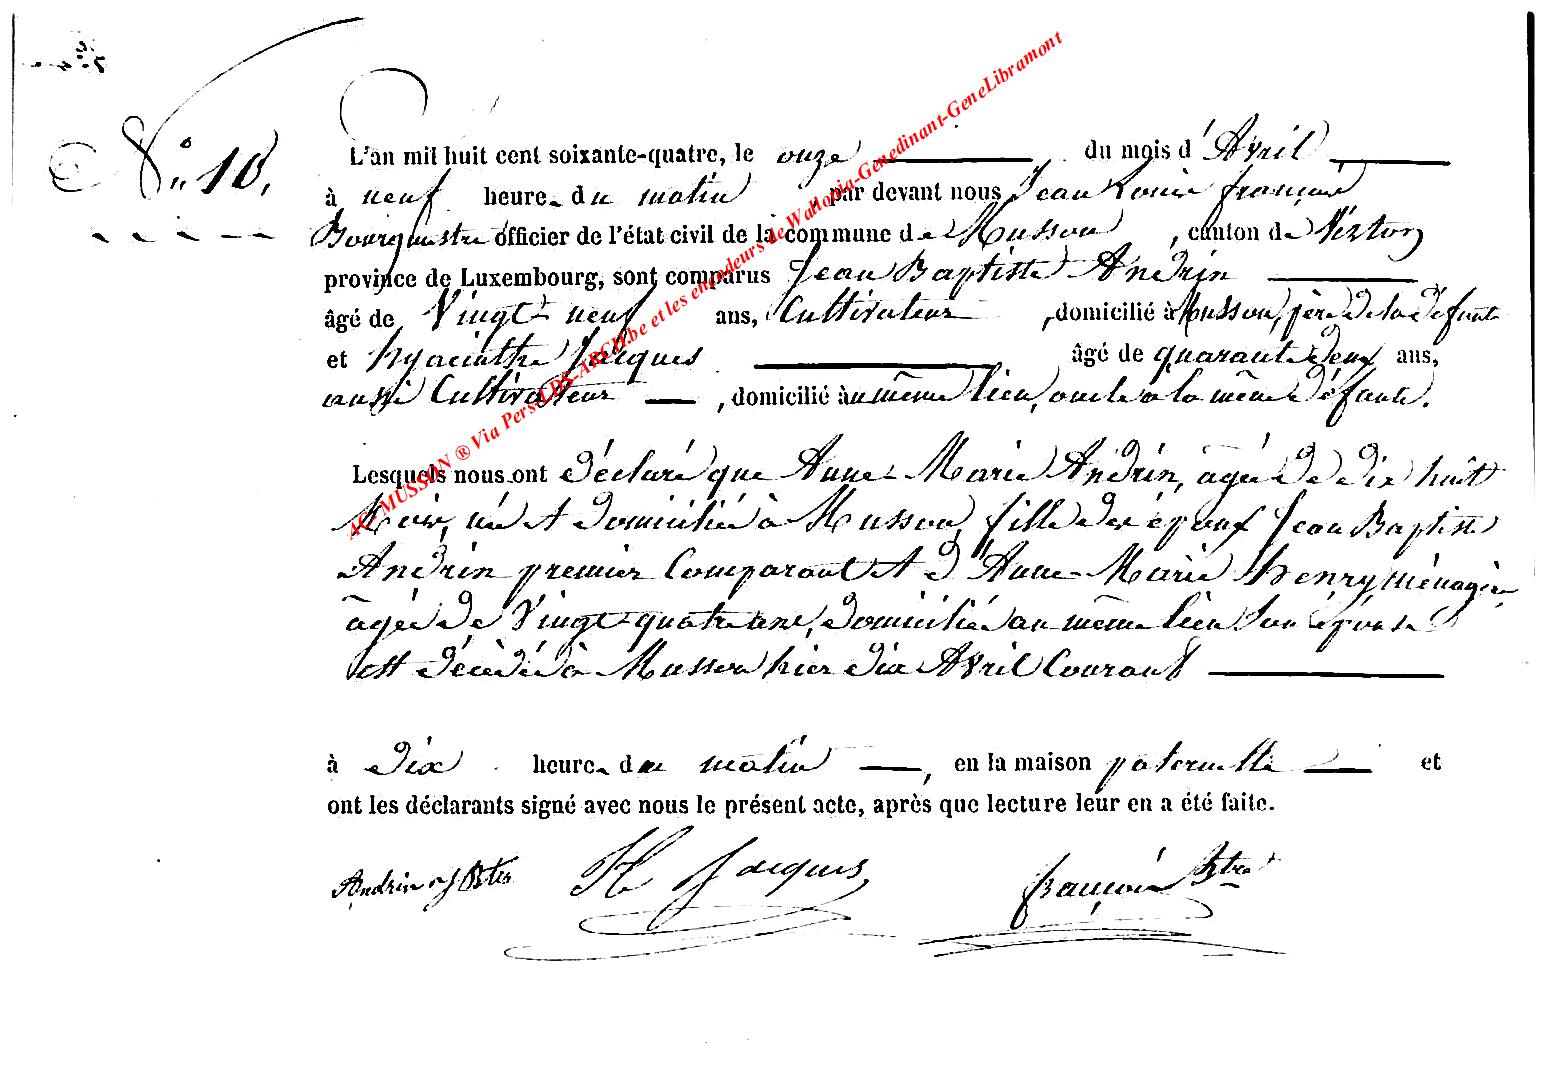 N° 10.
L'an mil huit cent soixante-quatre, le onze du mois d'Avril
à neuf heure du matin, par devant nous Jean Louis françois
Bourgmestre officier de l'état civil de la commune de Musson, canton de Virton
province de Luxembourg, sont comparus Jean Baptiste Andrin
âgé de Vingt-neuf ans, Cultivateur, domicilié à Musson, père de la défunte
et hyacinthe Jacques âgé de quarante deux ans,
aussi Cultivateur, domicilié au même lieu, oncle a la même défunte.
Lesquels nous ont déclaré que Anne-Marie Andrin, agée de dix huit
Mois, née et domiciliée à Musson, fille des époux Jean Baptiste
Andrin premier Comparant et d'Anne-Marie henry ménagère
âgée de Vingt-quatre ans, domiciliée au même lieu son épouse
est décédée à Musson hier dix Avril Courant
à dix heure du matin, en la maison paternelle et
ont les déclarants signé avec nous le présent acte, après que lecture leur en a été faite.
Andrin J Bte H Jacques françois
AC MUSSON ® Via Pers CDS-ARCH.be et les encodeurs de Wallonia-Genedinant-GeneLibramont